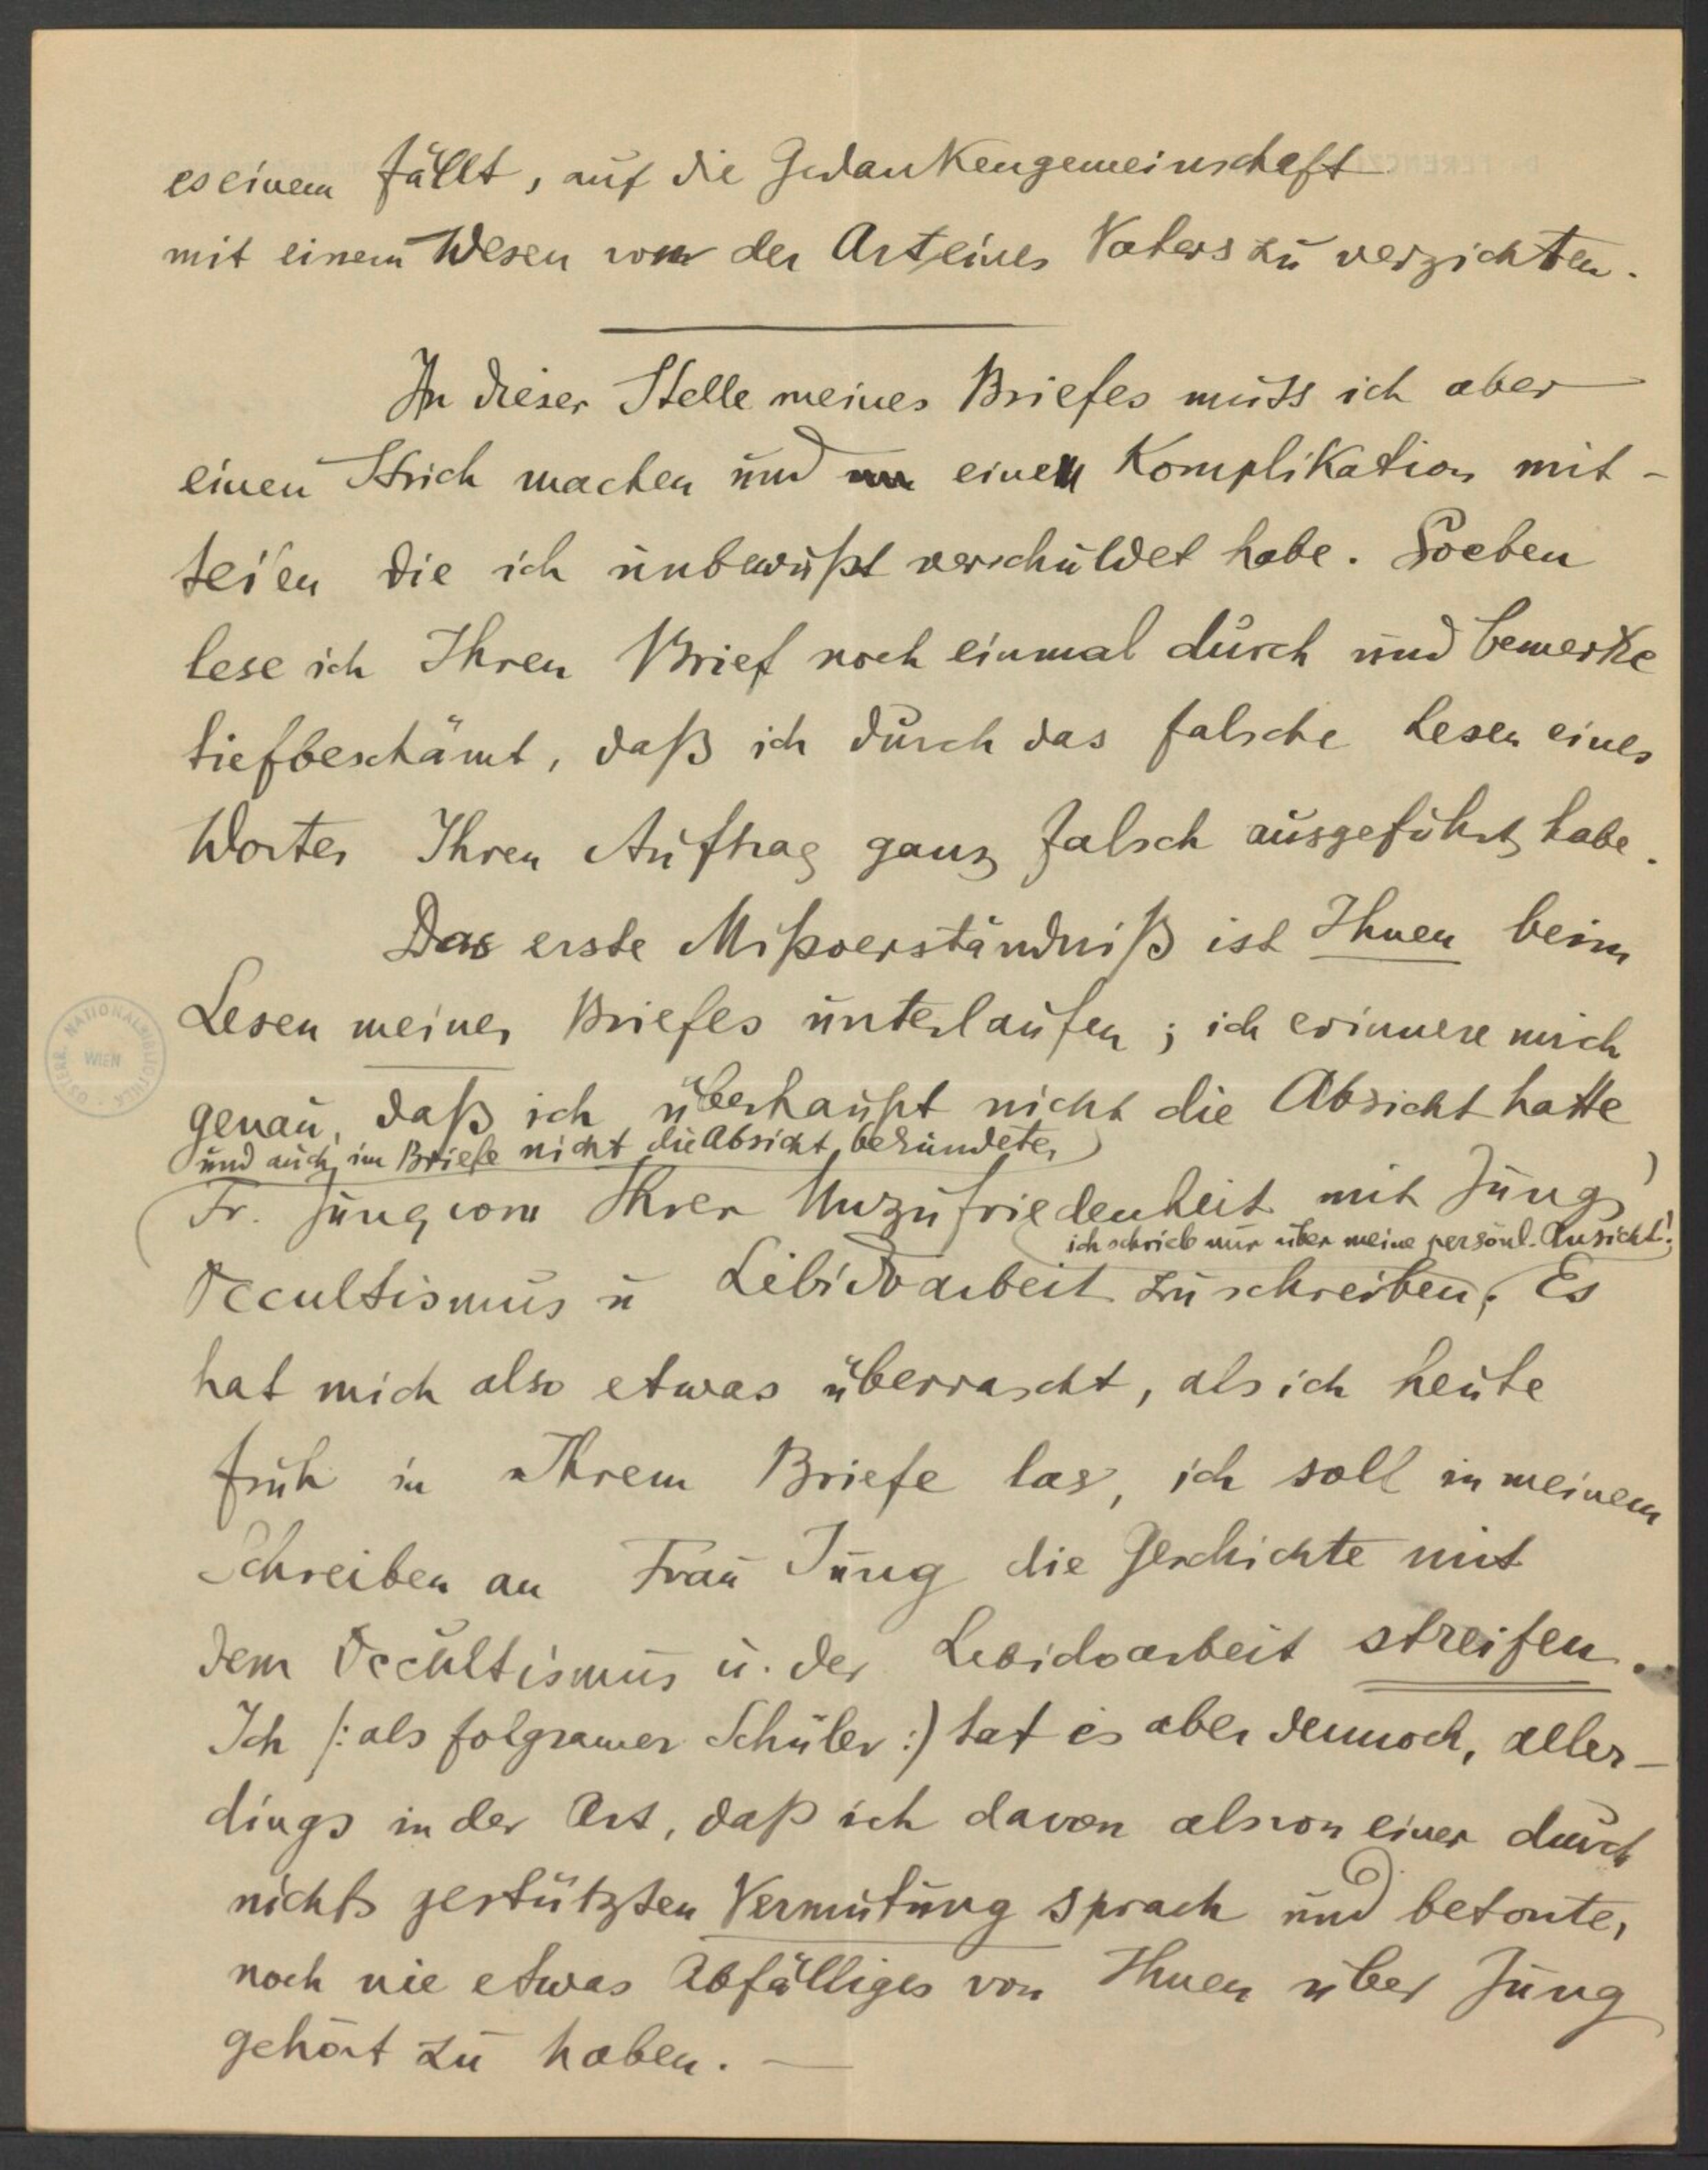 es einem fällt, auf die Gedankengemeinschaft
mit einem Wesen von der Art eines Vaters zu verzichten.
An dieser Stelle meines Briefes muss ich aber
einen Strich machen und eine Komplikation mit-
teilen die ich unbewußt verschuldet habe. Soeben
lese ich Ihren Brief noch einmal durch und bemerke
tiefbeschämt, daß ich durch das falsche Lesen eines
Wortes Ihren Auftrag ganz falsch ausgeführt habe.
Das erste Mißverständniß ist Ihnen beim
Lesen meines Briefes unterlaufen; ich erinnere mich
genau, daß ich überhaupt nicht die Absicht hatte
(und auch im Briefe nicht die Absicht bekundete)
Fr. Jung von Ihrer Unzufriedenheit mit Jungs
(ich schrieb nur über meine persönl. Ansicht!)
Occultismus u Libidoarbeit zu schreiben; Es
hat mich also etwas überrascht, als ich heute
früh in Ihrem Briefe las, ich soll in meinem
Schreiben an Frau Jung die Geschichte mit
dem Occultismus u. der Libidoarbeit streifen.
Ich (: als folgsamer Schüler :) tat es aber dennoch, aller-
dings in der Art, daß ich davon als von einer durch
nichts gestützten Vermutung sprach und betonte,
noch nie etwas Abfälliges von Ihnen über Jung
gehört zu haben. —
ÖSTERR. NATIONALBIBLIOTHEK
WIEN